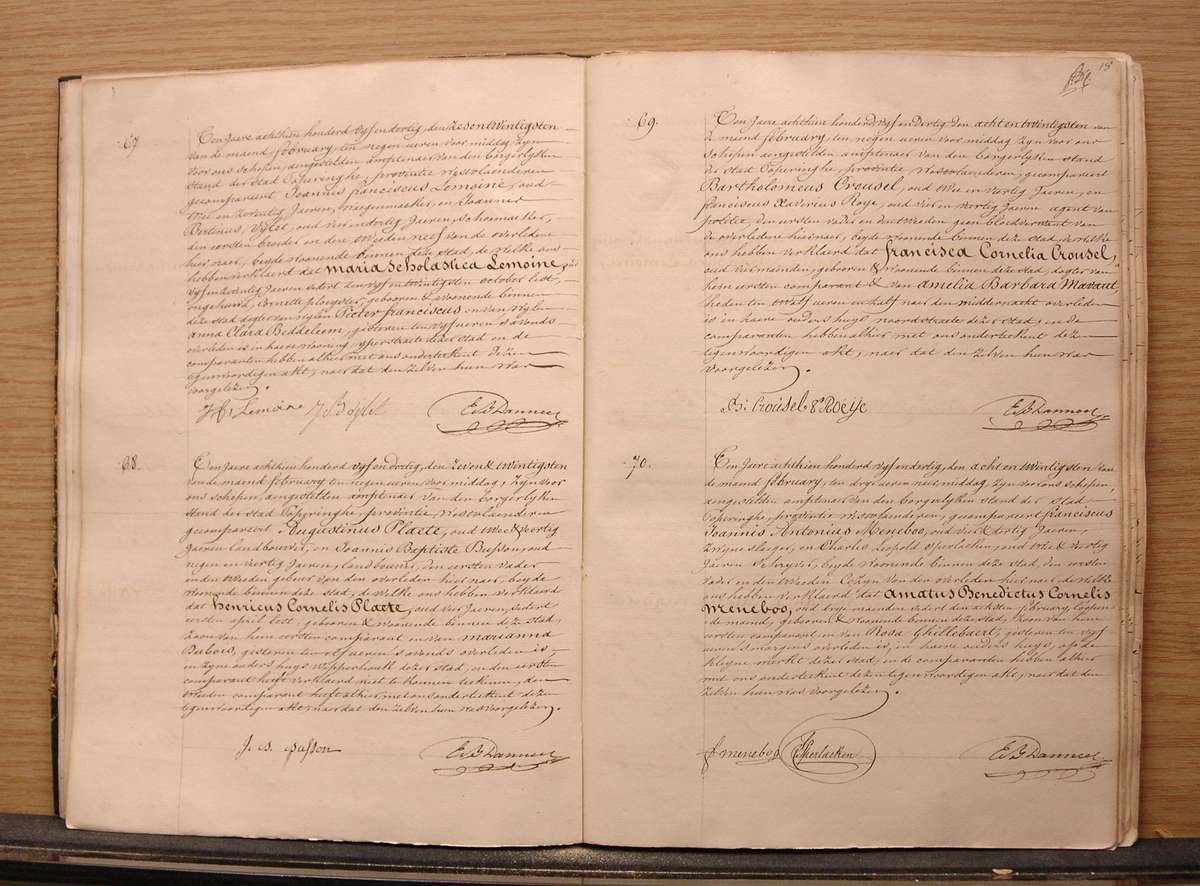 67
Ten Jaere achthien honderd vyf en dertig, den Zesentwintigsten
van de maend february, ten negen ueren voor middag, zyn
voor ons schepen, aengestelden amptenaer van den borgerlyken
stand der stad Poperinghe, provintie Westvlaenderen
gecompareert Joannis franciscus Lemoine, oud
Wee en Zeventig Jaeren, en Joannes
Bertinus, oud vier en dertig Jaeren, Schoemaeker,
den eersten broeder en den tweeden neef van de overledene
hier naer, beyde woonende binnen deze stad, de welke ons
hebben verklaerd dat maria Scholastica Lemoine, oud
vyf en Zeventig Jaeren sedert den vyf en twintigsten october lest,
ongehuwd, gebooren & woonende binnen
deze stad dogter van wylen Pieter franciscus en van wylen
anna Clara Beddeleem, gisteren ten vyf ueren s'avonds
overleden is in haere wooning, yperstraete dezer stad en de
comparanten hebben alhier met ons onderteekent dezen
tegenwoordigen akt, naer dat den zelven hun was
voorgelezen.
Lemoine E B Danneel
68.
Ten Jaere achthien honderd vyf en dertig, den Zeven & twintigsten
van de maend february ten negen ueren voor middag, zyn voor
ons schepen, aengestelden amptenaer van den borgerlyken
stand der stad Poperinghe, provintie Westvlaenderen
gecompareert Augustinus Plaete, oud twee & veertig
Jaeren landbouwer, en Joannis Baptiste Busson, oud
negen en veertig Jaeren, landbouwer, den eersten vader
en den tweeden gebuer van den overleden hier naer, beyde
woonende binnen deze stad, de welke ons hebben verklaerd
dat henricus Cornelis Plaete, oud vier Jaeren, sedert
eersten april lest, gebooren & woonende binnen deze stad,
zoon van hem eersten comparant en van marianna
Dubois, gisteren ten elf ueren s'avonds overleden is,
in zyne ouders huys Wipperhoek dezer stad, en den eersten
comparant heeft verklaerd niet te konnen teekenen, den
tweeden comparant heeft alhier met ons onderteekent dezen
tegenwoordigen akt, naer dat den zelven hun was voorgelezen.
J. B. Busson E B Danneel
18
69.
Ten Jaere achthien honderd vyf en dertig den acht en twintigsten van
de maend february, ten negen ueren voor middag zyn voor ons
schepen aengestelden amptenaer van den borgerlyken stand
der stad Poperinghe, provintie Westvlaenderen, gecompareert
Bartholomeus Crousel, oud twee en veertig Jaeren, en
franciscus Xaverius Roye, oud vier en veertig Jaeren agent van
politie, den eersten vader en den tweeden geen bloedverwant van
de overledene hier naer, beyde woonende binnen deze stad, de welke
ons hebben verklaerd dat francisca Cornelia Crousel,
oud vier maenden, gebooren & woonende binnen deze stad, dogter van
hem eersten comparant & van Amelia Barbara Mavaut,
heden ten twalf ueren en half naer den middernacht overleden
is in haere ouders huys noordstraete dezer stad, en de
comparanten hebben alhier met ons onderteekent dezen
tegenwoordigen akt, naer dat den zelven hun was
voorgelezen.
Crousel Roeije E B Danneel
70.
Ten Jaere achthien honderd vyf en dertig, den acht en twintigsten van
de maend february, ten drye ueren naer middag zyn voor ons schepen,
aengestelden amptenaer van den borgerlyken stand der stad
Poperinghe, provintie Westvlaenderen, gecompareert franciscus
Joannis Antonius Meneboo, oud vier & dertig Jaeren
en Charles Leopold Sperlaeken, oud twee & veertig
Jaeren, beyde woonende binnen deze stad, den eersten
vader en den tweeden Cozyn van den overleden hier naer de welke
ons hebben verklaerd dat Amatus Benedictus Cornelis
Meneboo, oud drye maenden sedert den achsten february loopen-
de maend, gebooren & woonende binnen deze stad, zoon van hem
eersten comparant en van Rosa Ghillebaert, gisteren ten vyf
ueren s'morgens overleden is, in haere ouders huys, op de
kleyne merkt dezer stad, en de comparanten hebben alhier
met ons onderteekent dezen tegenwoordigen akt, naer dat den
zelven hun was voorgelezen.
f meneboo Sperlaeken E B Danneel